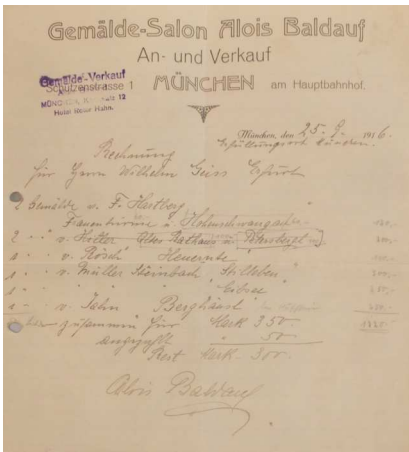 Gemälde-Salon Alois Baldauf
An- und Verkauf
Gemälde-Verkauf
Schützenstrasse 1 MÜNCHEN am Hauptbahnhof.
München, den 25. 9. 1916.
Erfüllungsort München.
Rechnung
für Herrn Wilhelm Geiss Erfurt
2 Gemälde v. F. Hartberg
Frauentürme u Hohenschwangau
2 " " v. Hitler Altes Rathaus u. Petersbergl
1 " " v. Rosch Heuernte
1 " " v. Müller Steinbach Stilleben
1 " " "
1 " " v. Jahn Berghäusl
zusammen für Mark 350-
angezahlt " 50-
Rest Mark 300-
Alois Baldauf